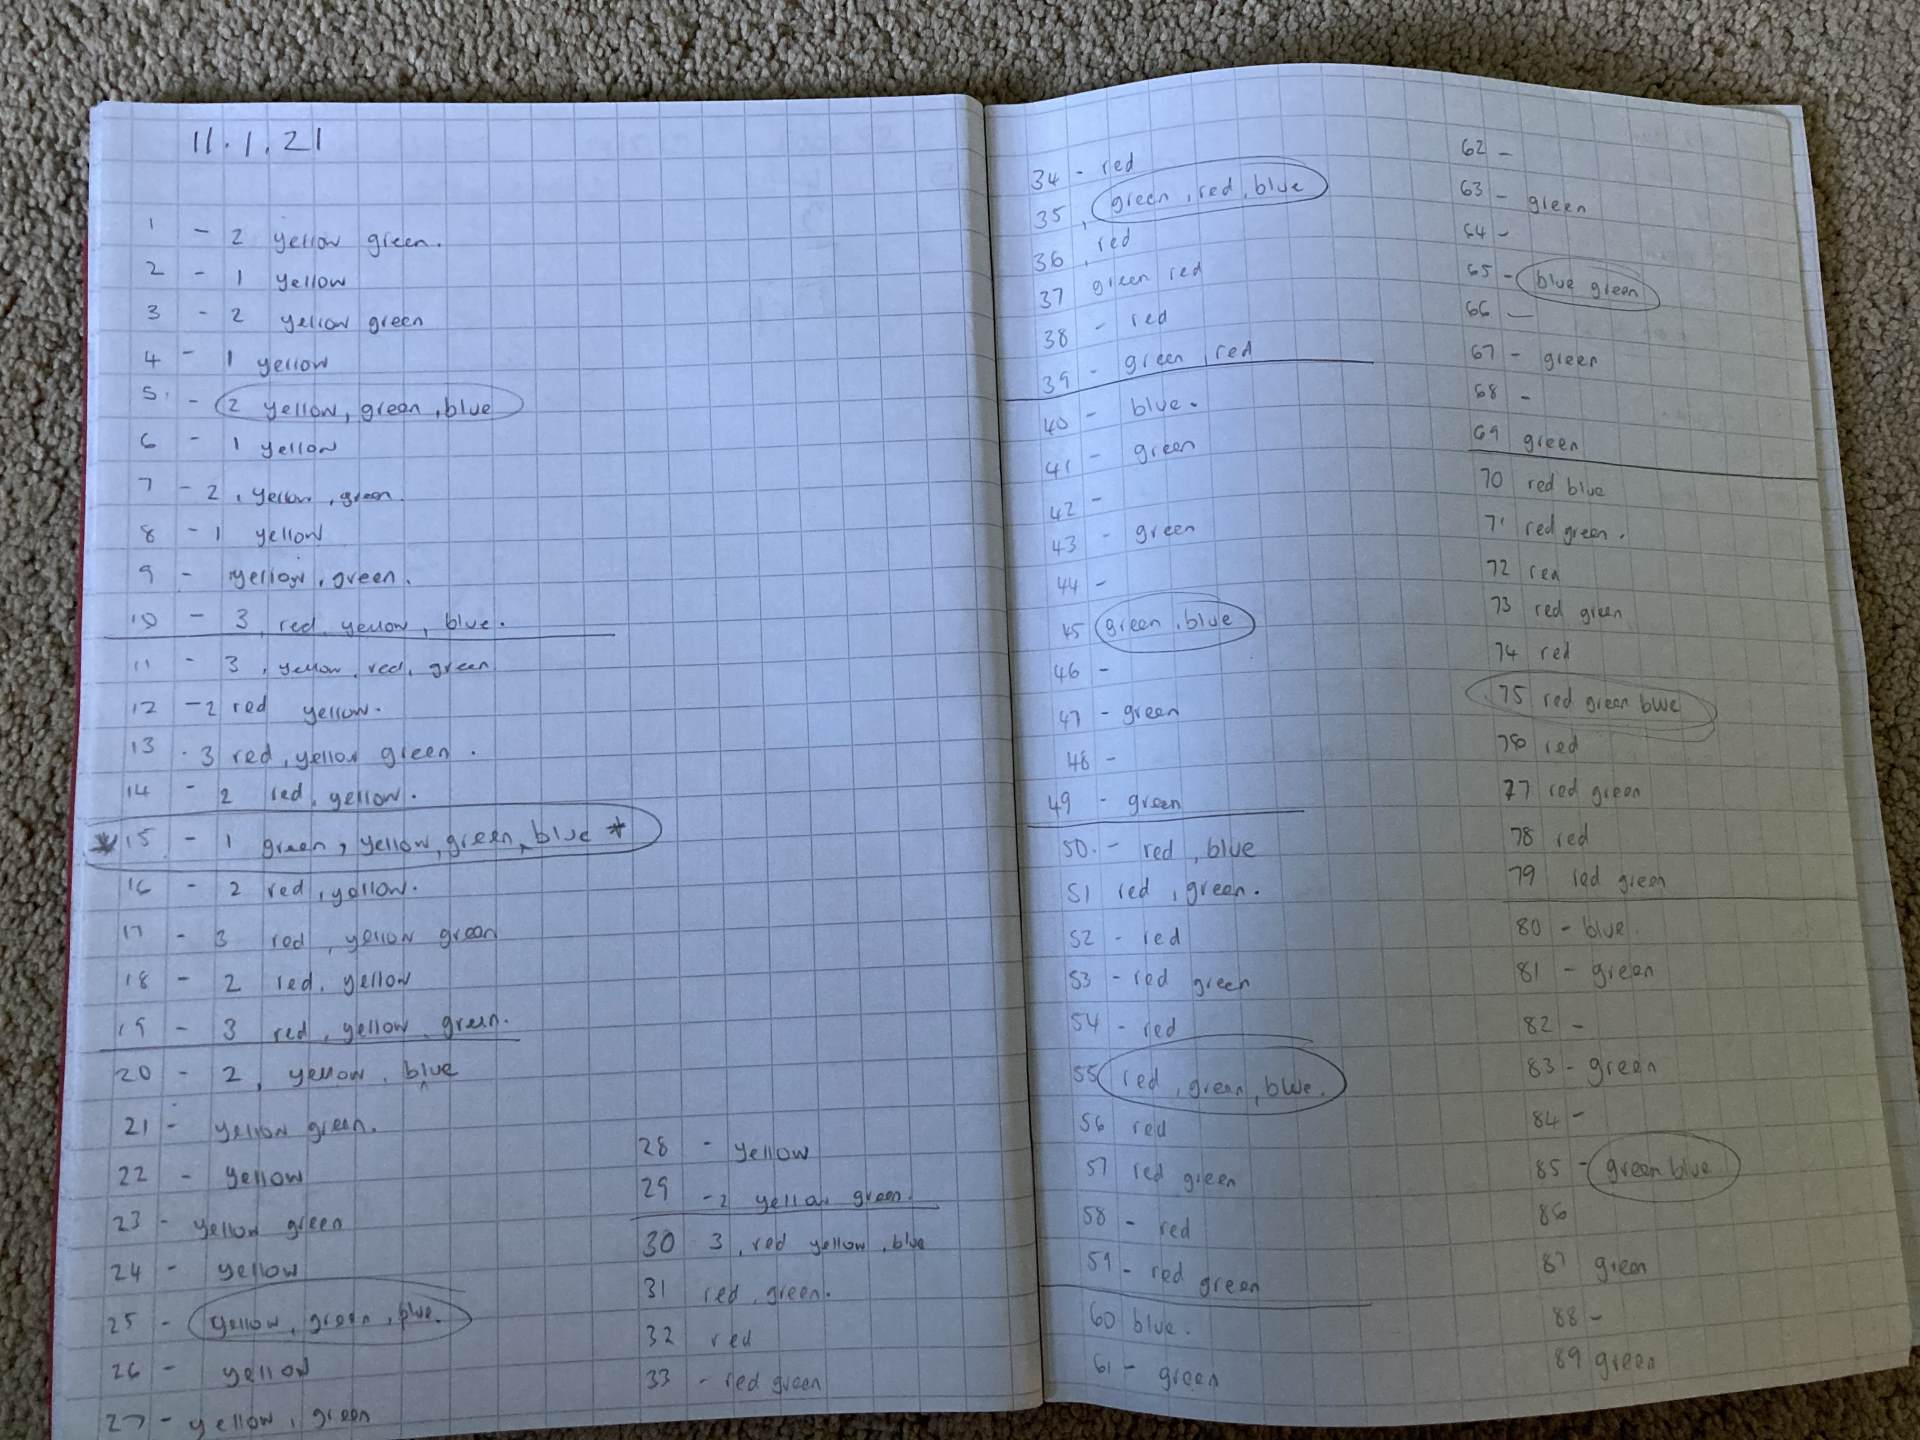 11.1.21
1 - 2 yellow green.
2 - 1 yellow
3 - 2 yellow green
4 - 1 yellow
5. - 2 yellow, green, blue
6 - 1 yellow
7 - 2, yellow, green.
8 - 1 yellow
9 - yellow, green.
10 - 3, red, yellow, blue.
11 - 3, yellow, red, green
12 - 2 red yellow.
13 . 3 red, yellow green.
14 - 2 red, yellow.
*15 - 1 green, yellow, green, blue *
16 - 2 red, yellow.
17 - 3 red, yellow green
18 - 2 red, yellow
19 - 3 red, yellow, green.
20 - 2, yellow, blue
21 - yellow green.
22 - yellow
23 - yellow green
24 - yellow
25 - yellow, green, blue.
26 - yellow
27 - yellow, green
28 - yellow
29 - 2 yellow green.
30 3, red yellow, blue
31 red, green.
32 red
33 - red green
34 - red
35, green, red, blue
36, red
37 green red
38 - red
39 - green, red
40 - blue.
41 - green
42 -
43 - green
44 -
45 green, blue
46 -
47 - green
48 -
49 - green
50. - red, blue
51 red, green.
52 - red
53 - red green
54 - red
55 red, green, blue.
56 red
57 red green
58 - red
59 - red green
60 blue.
61 - green
62 -
63 - green
64 -
65 - blue green
66 -
67 - green
68 -
69 green
70 red blue
71 red green.
72 red
73 red green
74 red
75 red green blue
76 red
77 red green
78 red
79 red green
80 - blue.
81 - green
82 -
83 - green
84 -
85 - green blue
86
87 green
88 -
89 green